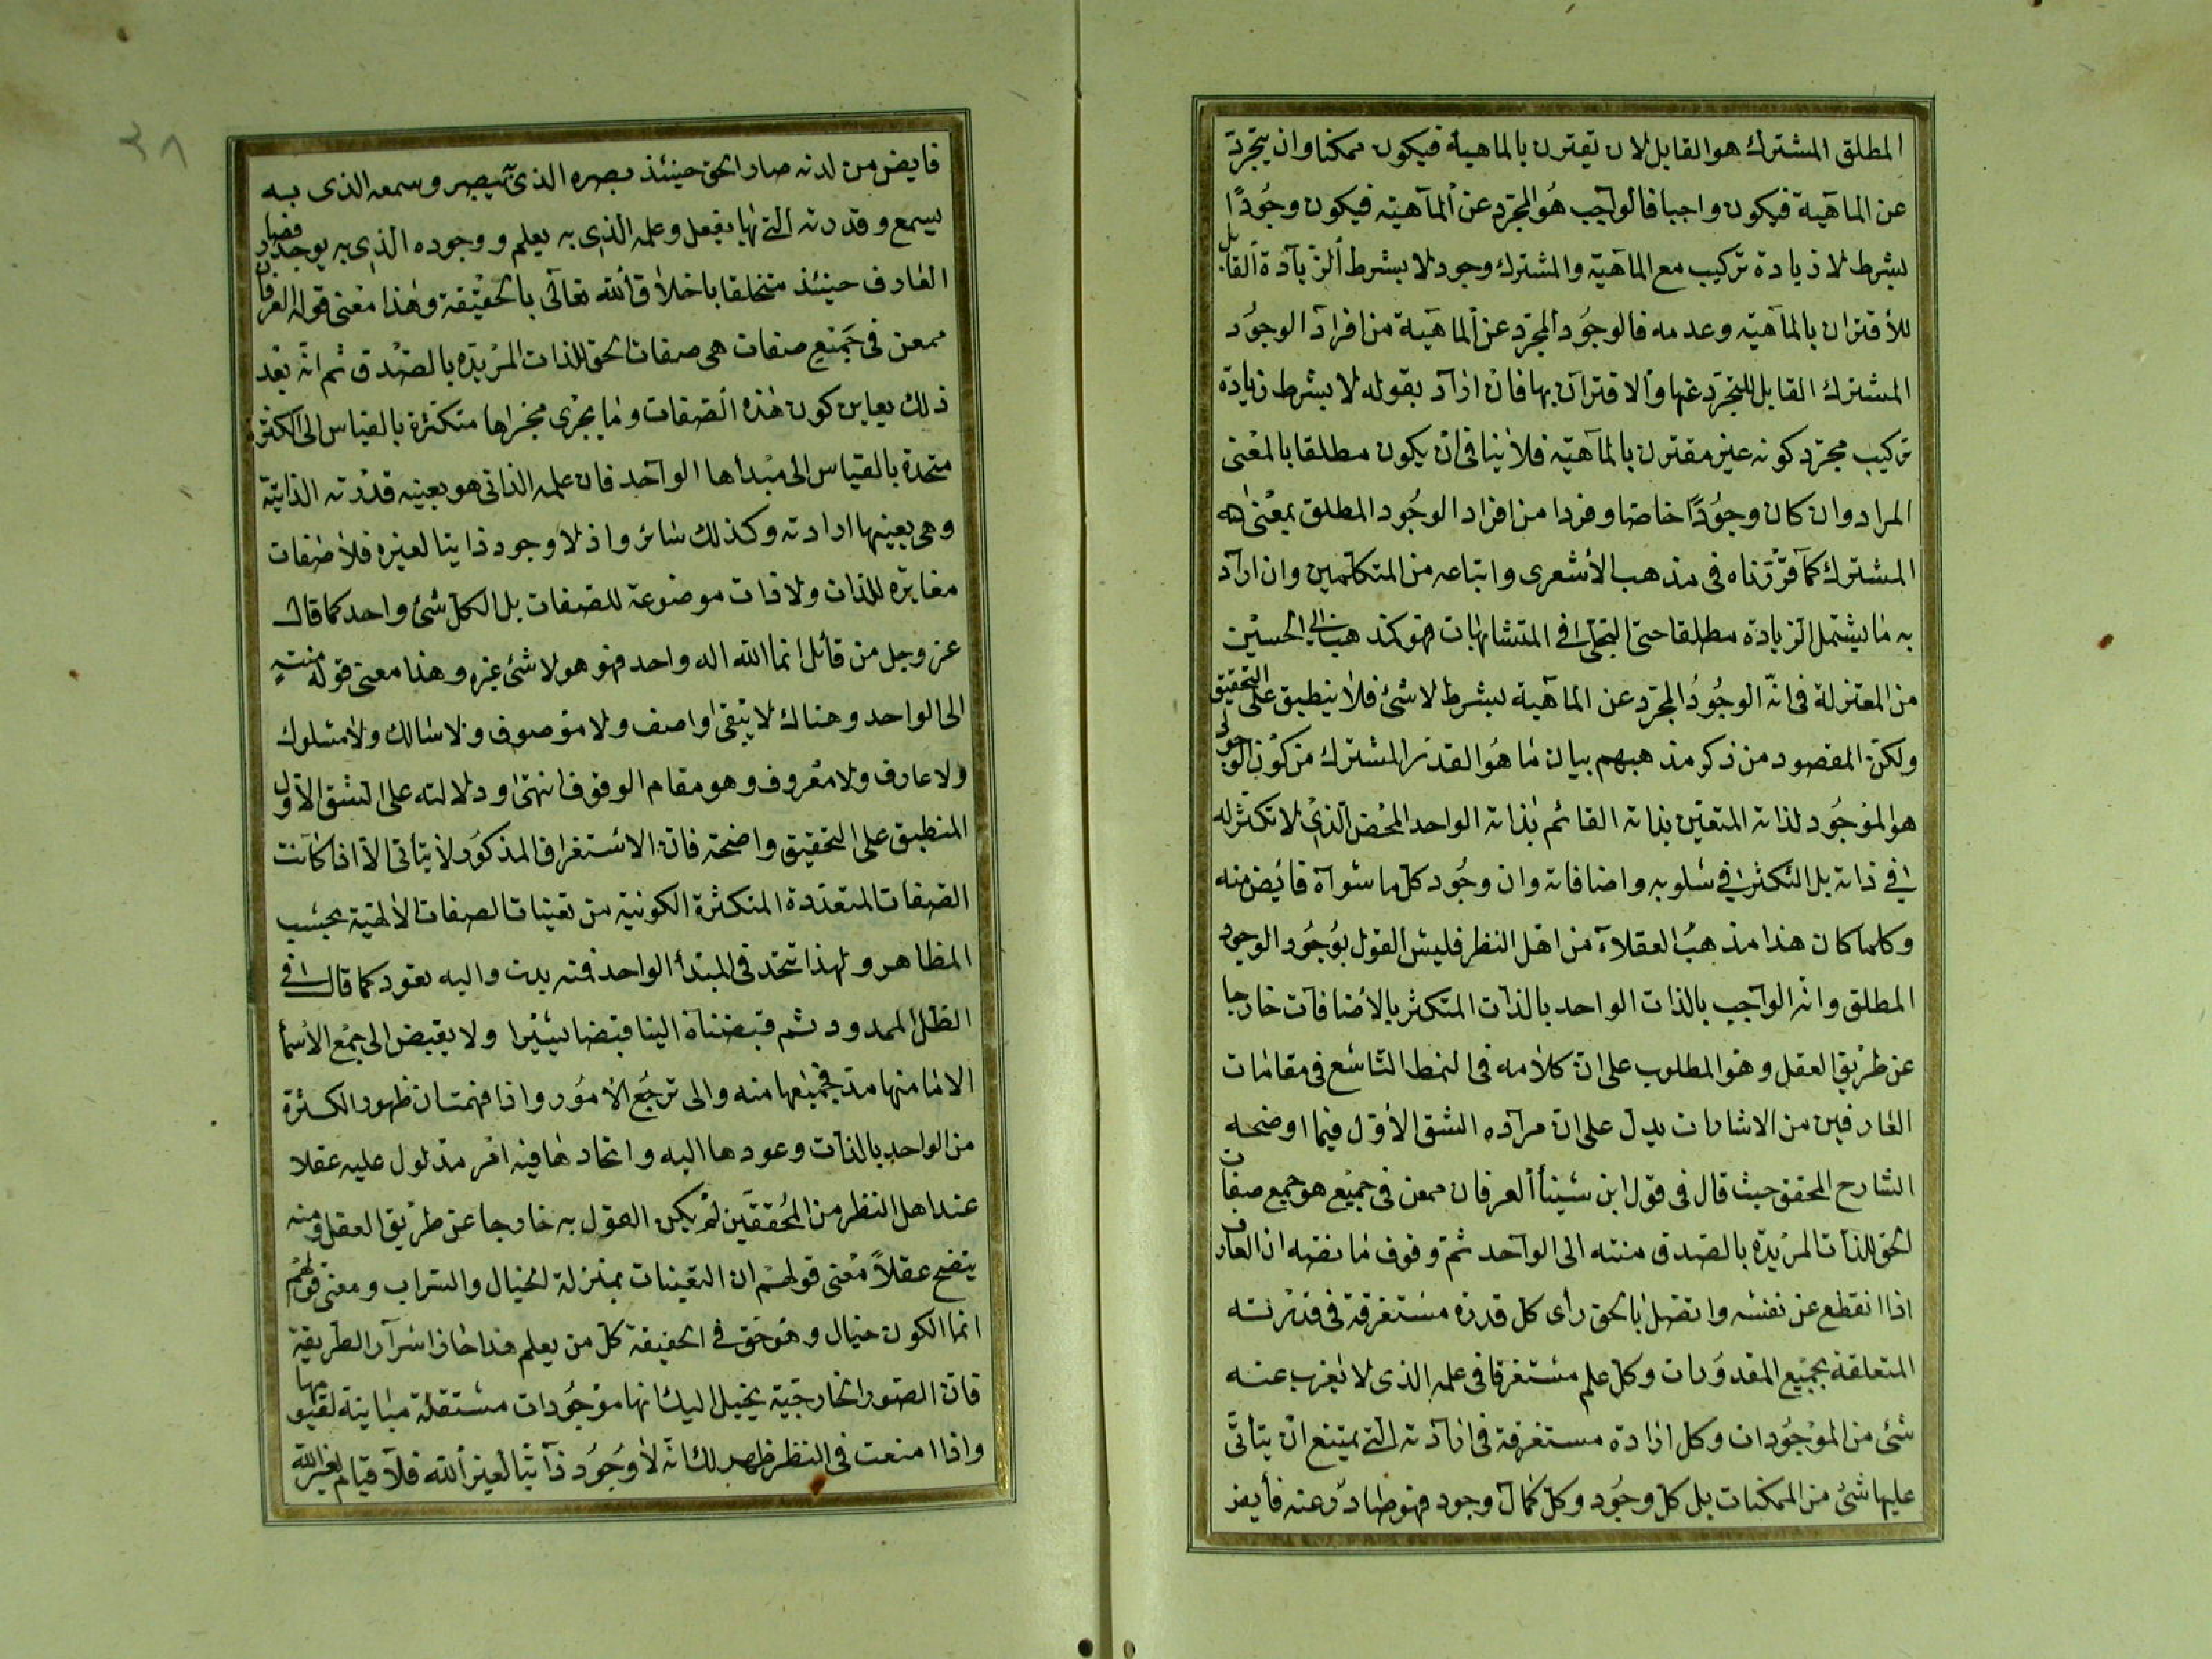 المطلق المشترك هو القابل لان يقترن بالماهية فيكون ممكنا وان يتجرد
عن الماهية فيكون واجبا فالواجب هو المجرد عن الماهية فيكون وجودا
بشرط لا زيادة تركيب مع الماهية والمشترك وجود لا بشرط الزيادة القابل
للاقتران بالماهية وعدمه فالوجود المجرد عن الماهية من افراد الوجود
المشترك القابل للتجرد عنها والاقتران بها فان اراد بقوله لا بشرط زيادة
تركيب مجرد كونه غير مقترن بالماهية فلا ينافى ان يكون مطلقا بالمعنى
المراد وان كان وجودا خاصا وفردا من افراد الوجود المطلق بمعناه
المشترك كما قررناه فى مذهب الأشعرى واتباعه من المتكلمين وان اراد
به ما يشتمل الزيادة مطلقا حتى التجلى فى المتشابهات فهو كمذهب ابى الحسين
من المعتزلة فى انه الوجود المجرد عن الماهية بشرط لا شئ فلا ينطبق على التحقيق
ولكن المقصود من ذكر مذهبهم بيان ما هو القدر المشترك من كون الوجود
هو الموجود لذاته المتعين بذاته القائم بذاته الواحد المحض الذى لا تكثر له
فى ذاته بل التكثر فى سلوبه واضافاته وان وجود كل ما سواه فائض منه
وكلما كان هذا مذهب العقلاء من اهل النظر فليس القول بوجود الوجود
المطلق وانه الواجب بالذات الواحد بالذات المتكثر بالاضافات خارجا
عن طريق العقل وهو المطلوب على ان كلامه فى النمط التاسع فى مقامات
العارفين من الاشارات يدل على ان مراده الشق الأول فيما اوضحه
الشارح المحقق حيث قال فى قول ابن سينا العرفان ممعن فى جميع هو جميع صفات
الحق للذات المريدة بالصدق منته الى الواحد ثم وقوف ما نصه ان العارف
اذا انقطع عن نفسه واتصل بالحق رأى كل قدرة مستغرقة فى قدرته
المتعلقة بجميع المقدورات وكل علم مستغرقا فى علمه الذى لا يعزب عنه
شئ من الموجودات وكل ارادة مستغرقة فى ارادته التى يمتنع ان يتأتى
عليها شئ من الممكنات بل كل وجود وكل كمال وجود فهو صادر عنه فايض
٣٨
فايض من لدنه صار الحق حينئذ بصره الذى به يبصر وسمعه الذى به
يسمع وقدرته التى بها يفعل وعلمه الذى به يعلم ووجوده الذى به يوجد فصار
العارف حينئذ متخلقا باخلاق الله تعالى بالحقيقة وهذا معنى قوله العرفان
ممعن فى جميع صفات هى صفات الحق للذات المريدة بالصدق ثم انه بعد
ذلك يعاين كون هذه الصفات وما يجرى مجراها متكثرة بالقياس الى الكثرة
متحدة بالقياس الى مبدأها الواحد فان علمه الذاتى هو بعينه قدرته الذاتية
وهى بعينها ارادته وكذلك سائر واذ لا وجود ذاتيا لغيره فلا صفات
مغايرة للذات ولا ذات موضوعة للصفات بل الكل شئ واحد كما قال
عز وجل من قائل انما الله اله واحد فهو هو لا شئ غيره وهذا معنى قوله منته
الى الواحد وهناك لا يبقى واصف ولا موصوف ولا سالك ولا مسلوك
ولا عارف ولا معروف وهو مقام الوقوف انتهى ودلالته على الشق الأول
المنطبق على التحقيق واضحة فان الاستغراق المذكور لا يتأتى الا اذا كانت
الصفات المتعددة المتكثرة الكونية من تعينات الصفات الالهية بحسب
المظاهر ولهذا تتحد فى المبتدأ الواحد فمنه بدت واليه تعود كما قال فى
الظل الممدود ثم قبضناه الينا قبضا يسيرا ولا يقبض الى جمع الأسماء
الا ما منها مد فجميعها منه والى ترجع الأمور واذا فهمت ان ظهور الكثرة
من الواحد بالذات وعودها اليه واتحادها فيه امر مدلول عليه عقلا
عند اهل النظر من المحققين لم يكن القول به خارجا عن طريق العقل ومنه
يتضح عقلا معنى قولهم ان التعينات بمنزلة الخيال والسراب ومعنى قولهم
انما الكون خيال وهو حق فى الحقيقة كل من يعلم هذا حاز اسرار الطريقة
فان الصور الخارجية يخيل اليك انها موجودات مستقلة مباينة لقيومها
واذا امنعت فى النظر ظهر لك انه لا وجود ذاتيا لغير الله فلا قيام لغير الله